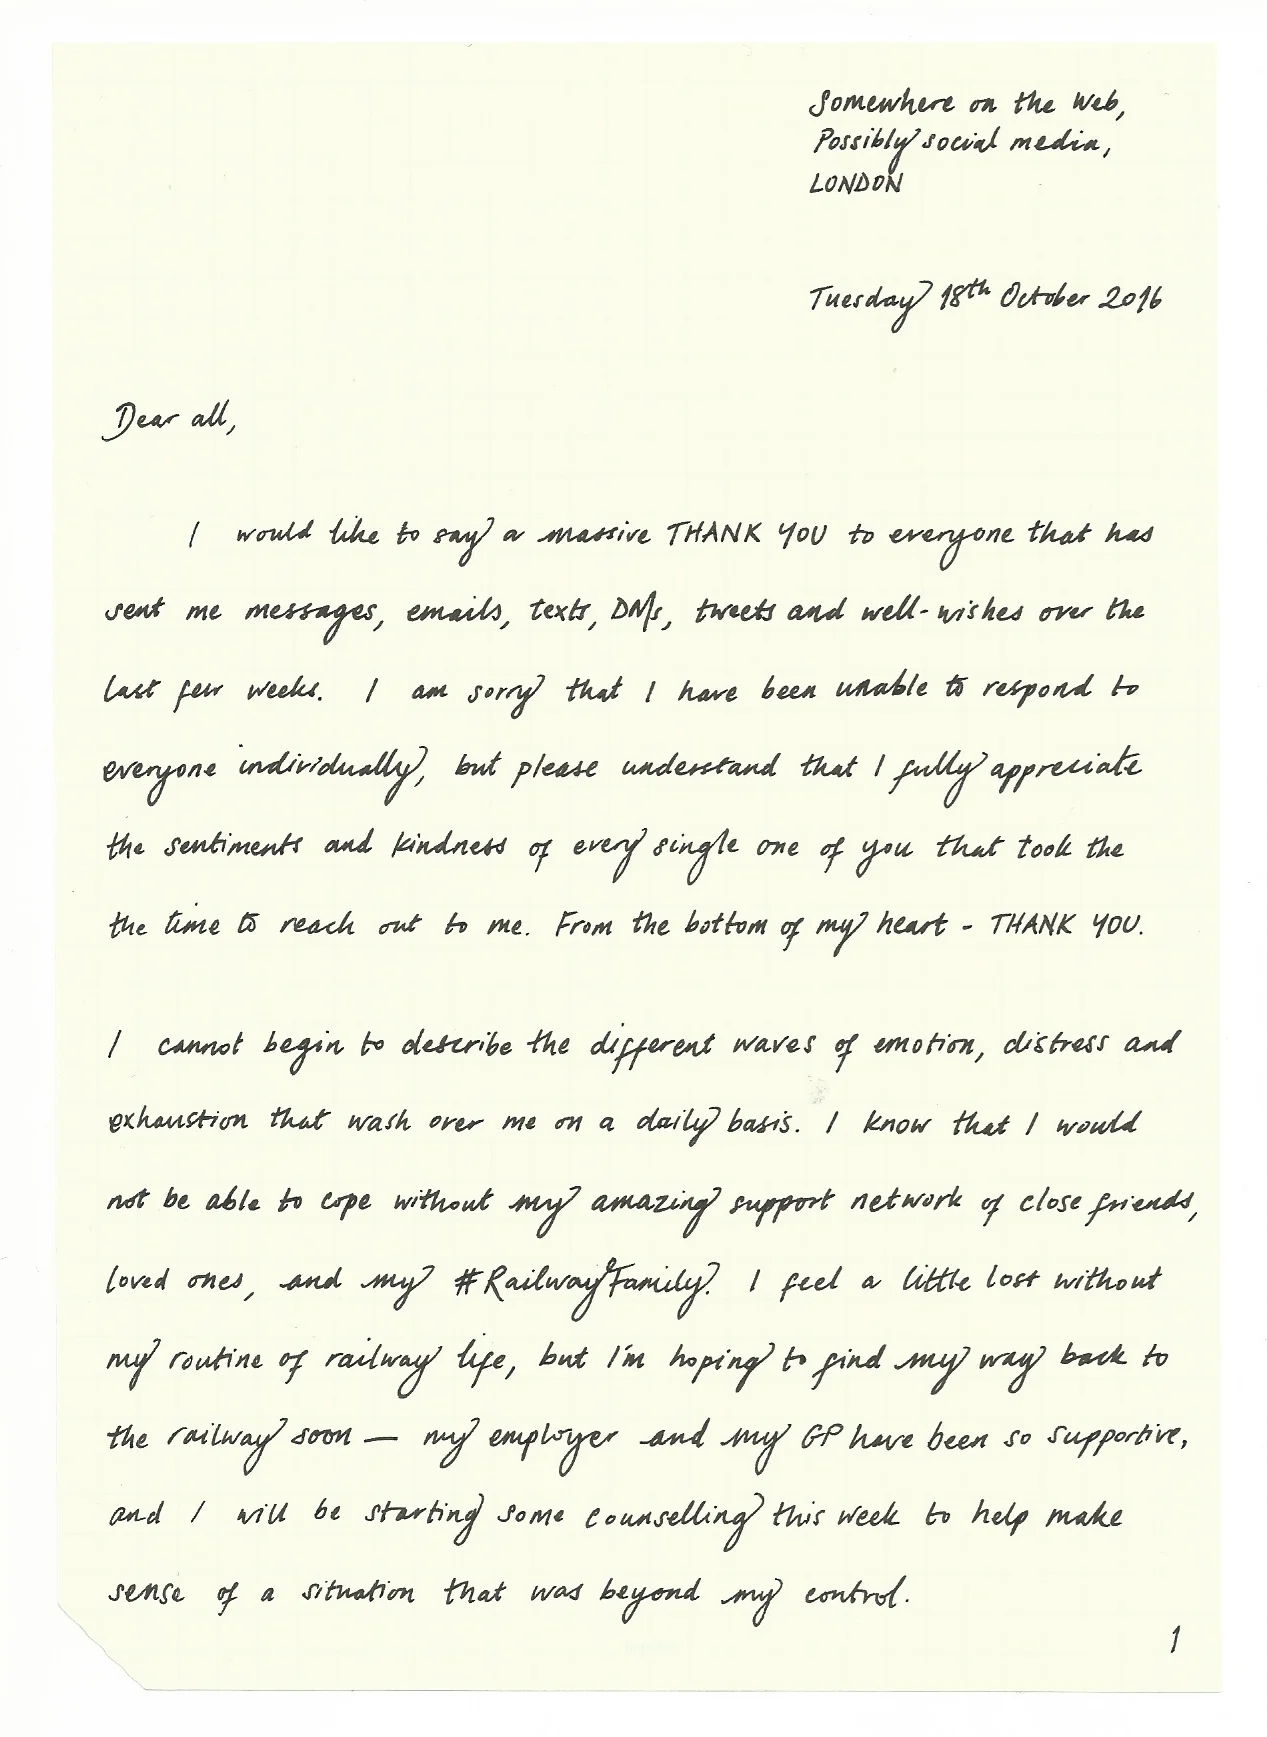 Somewhere on the Web,
Possibly social media,
LONDON
Tuesday 18th October 2016
Dear all,
I would like to say a massive THANK YOU to everyone that has
sent me messages, emails, texts, DMs, tweets and well-wishes over the
last few weeks. I am sorry that I have been unable to respond to
everyone individually, but please understand that I fully appreciate
the sentiments and kindness of every single one of you that took the
the time to reach out to me. From the bottom of my heart - THANK YOU.
I cannot begin to describe the different waves of emotion, distress and
exhaustion that wash over me on a daily basis. I know that I would
not be able to cope without my amazing support network of close friends,
loved ones, and my #RailwayFamily. I feel a little lost without
my routine of railway life, but I'm hoping to find my way back to
the railway soon — my employer and my GP have been so supportive,
and I will be starting some counselling this week to help make
sense of a situation that was beyond my control.
1